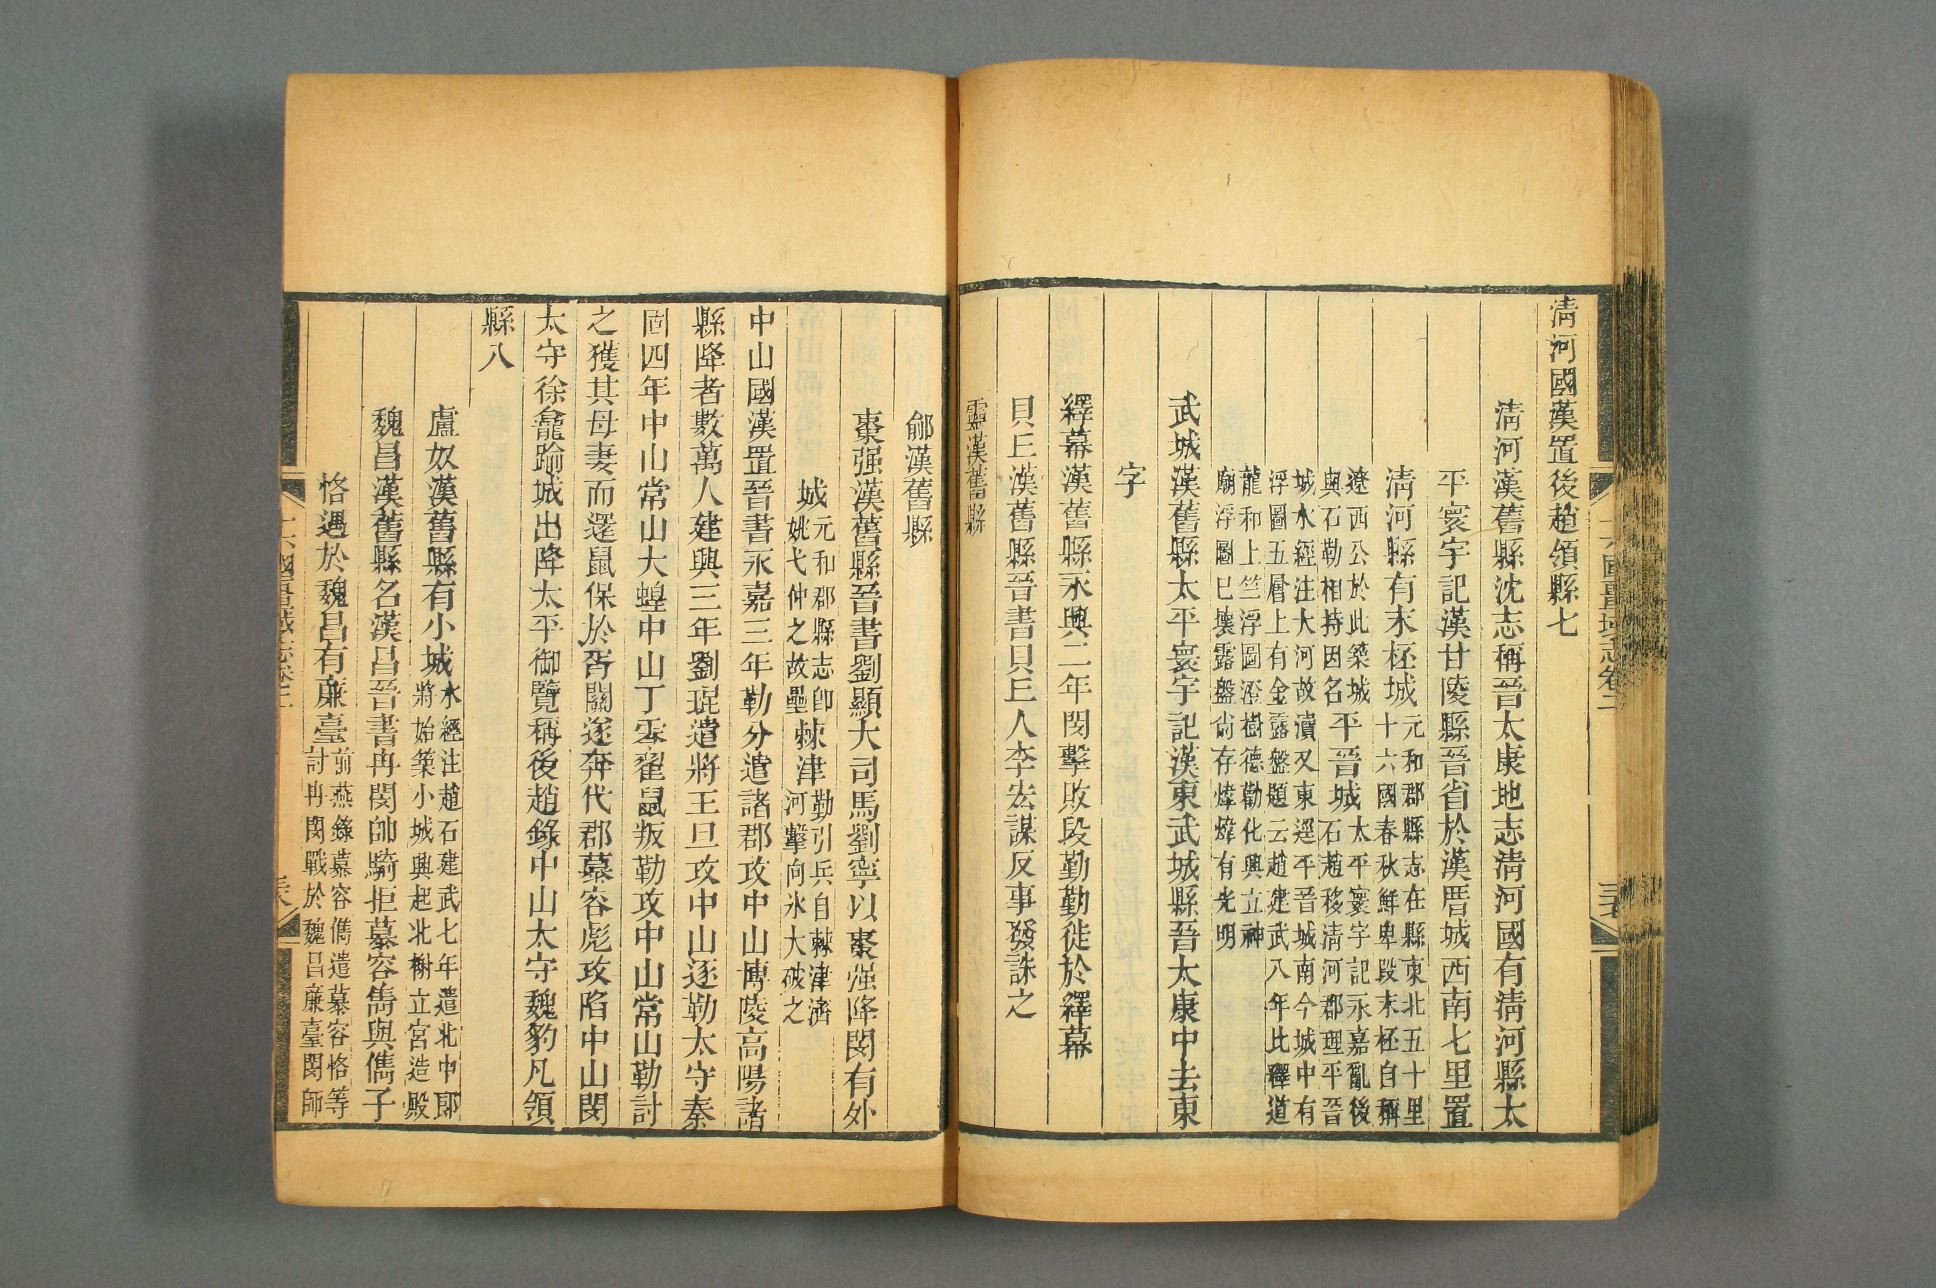 清河國漢置後趙領縣七
清河漢舊縣沈志稱晉太康地志清河國有清河縣太
平寰宇記漢甘陵縣晉省於漢厝城西南七里置
清河縣有末柸城元和郡縣志在縣東北五十里
十六國春秋鮮卑段末柸自稱
遼西公於此築城
與石勒相持因名平晉城太平寰宇記永嘉亂後
石趙移清河郡理平晉
城水經注大河故瀆又東逕平晉城南今城中有
浮圖五層上有金露盤題云趙建武八年比釋道
龍和上竺浮圖澄樹德勸化興立神
廟浮圖已壞露盤尙存煒煒有光明
武城漢舊縣太平寰宇記漢東武城縣晉太康中去東
字
繹幕漢舊縣永興二年閔擊敗段勤勤徙於繹幕
貝丘漢舊縣晉書貝丘人李宏謀反事發誅之
靈漢舊縣
鄃漢舊縣
棗强漢舊縣晉書劉顯大司馬劉寧以棗强降閔有外
城元和郡縣志卽
姚弋仲之故壘棘津勤引兵自棘津濟
河擊向氷大破之
中山國漢置晉書永嘉三年勒分遣諸郡攻中山博陵高陽諸
縣降者數萬人建興三年劉琨遣將王旦攻中山逐勒太守秦
固四年中山常山大蝗中山丁零翟鼠叛勒攻中山常山勒討
之獲其母妻而還鼠保於胥關遂奔代郡慕容彪攻陷中山閔
太守徐龕踰城出降太平御覽稱後趙錄中山太守魏豹凡領
縣八
盧奴漢舊縣有小城水經注趙石建武七年遣北中郎
將始築小城興起北榭立宮造殿
魏昌漢舊縣名漢昌晉書冉閔帥騎拒慕容儁與儁子
恪遇於魏昌有廉臺前燕錄慕容儁遣慕容恪等
討冉閔戰於魏昌廉臺閔師